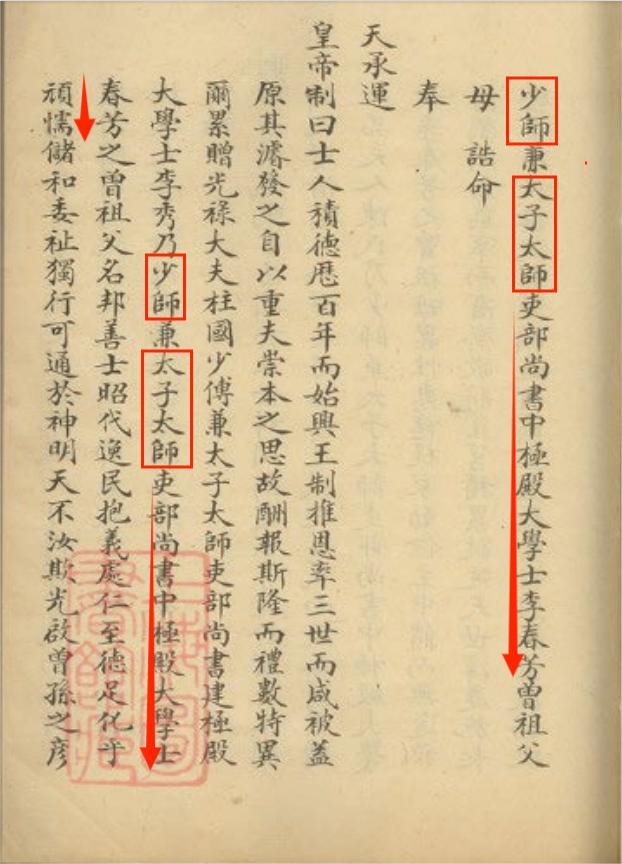 少師兼太子太師吏部尚書中極殿大學士李春芳曾祖父
母 誥命
奉
天承運
皇帝制曰士人積德厯百年而始興王制推恩率三世而咸被葢
原其濬發之自以重夫崇本之思故酬報斯隆而禮數特異
爾累贈光祿大夫柱國少傅兼太子太師吏部尚書建極殿
大學士李秀乃少師兼太子太師吏部尚書中極殿大學士
春芳之曾祖父名邦善士昭代逸民抱義處仁至德足化乎
頑懦儲和委祉獨行可通於神明天不汝欺光啟曾孫之彥